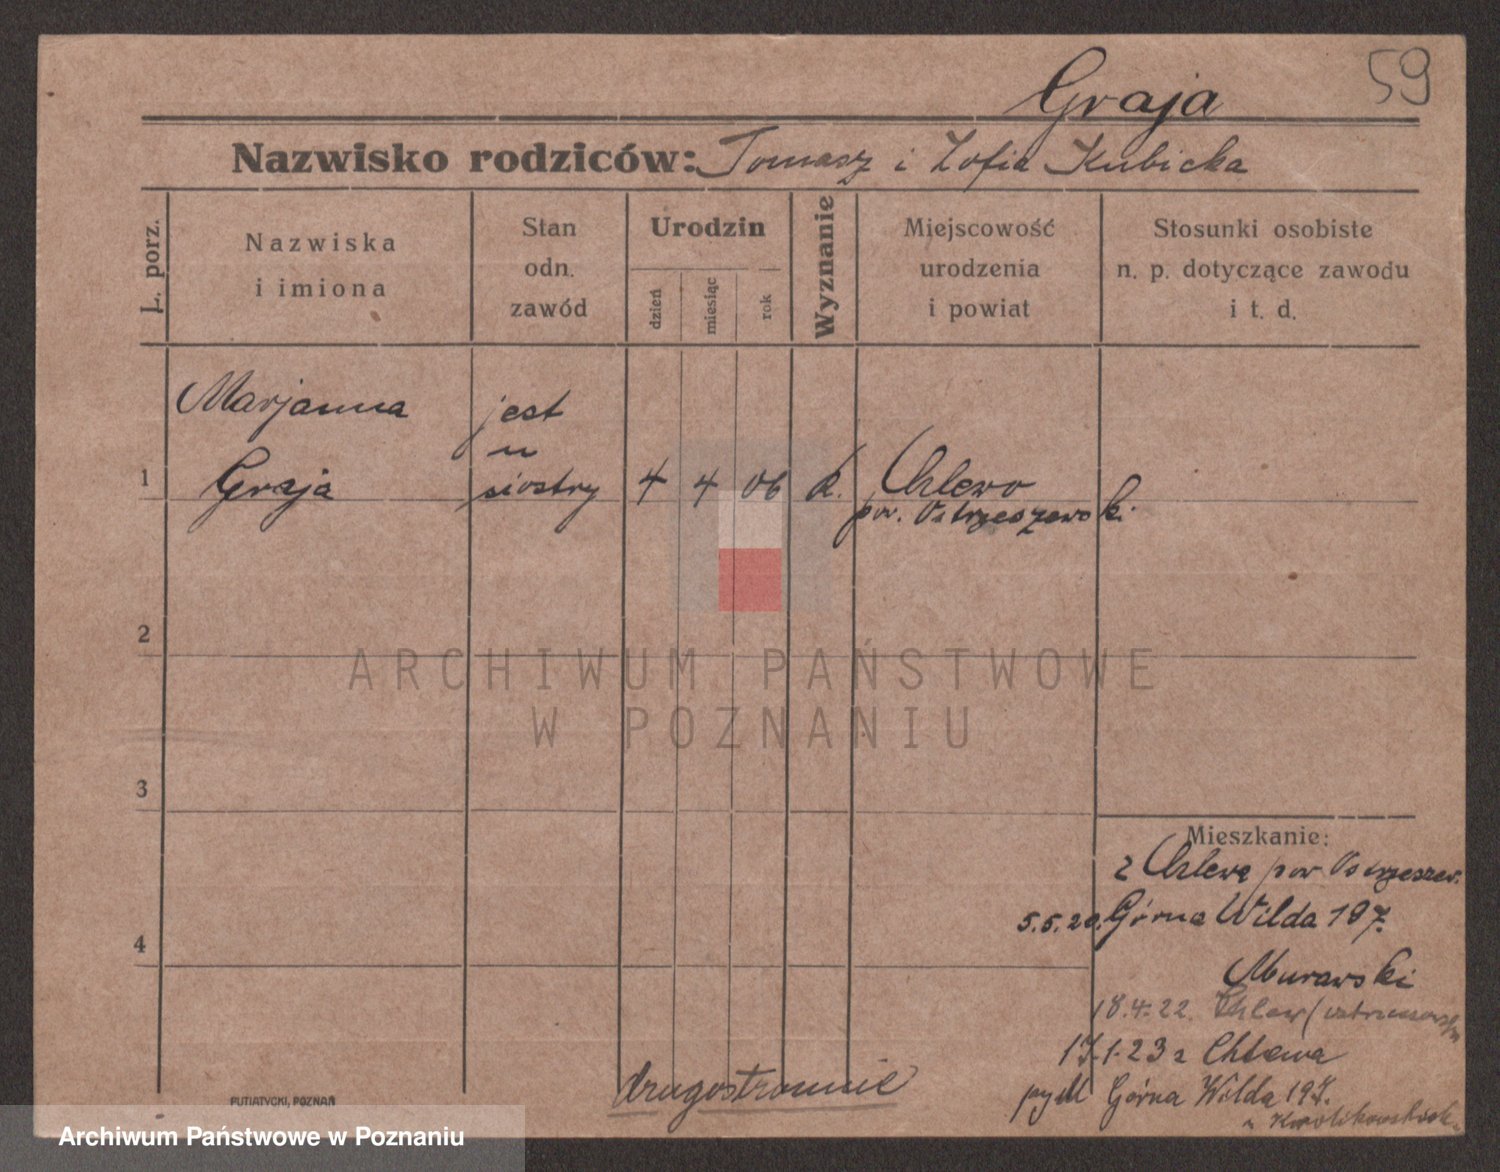 59
Graja
Nazwisko rodziców: Tomasz i Zofia Kubicka
L. porz.
Nazwiska
i imiona
Stan
odn.
zawód
Urodzin
dzień
miesiąc
rok
Wyznanie
Miejscowość
urodzenia
i powiat
Stosunki osobiste
n. p. dotyczące zawodu
i t. d.
Marjanna
jest
u
1 Graja siostry 4 4 06 k. Chlewo
pow. Ostrzeszewski
2
ARCHIWUM PAŃSTWOWE
W POZNANIU
3
Mieszkanie:
z Chlewa pow Ostrzeszew.
5.5.20. Górna Wilda 197.
4
Murawski
18.4.22. Chlew
17.1.23 z Chlewa
Górna Wilda 197.
drugostronnie
PUTIATYCKI, POZNAŃ
Archiwum Państwowe w Poznaniu